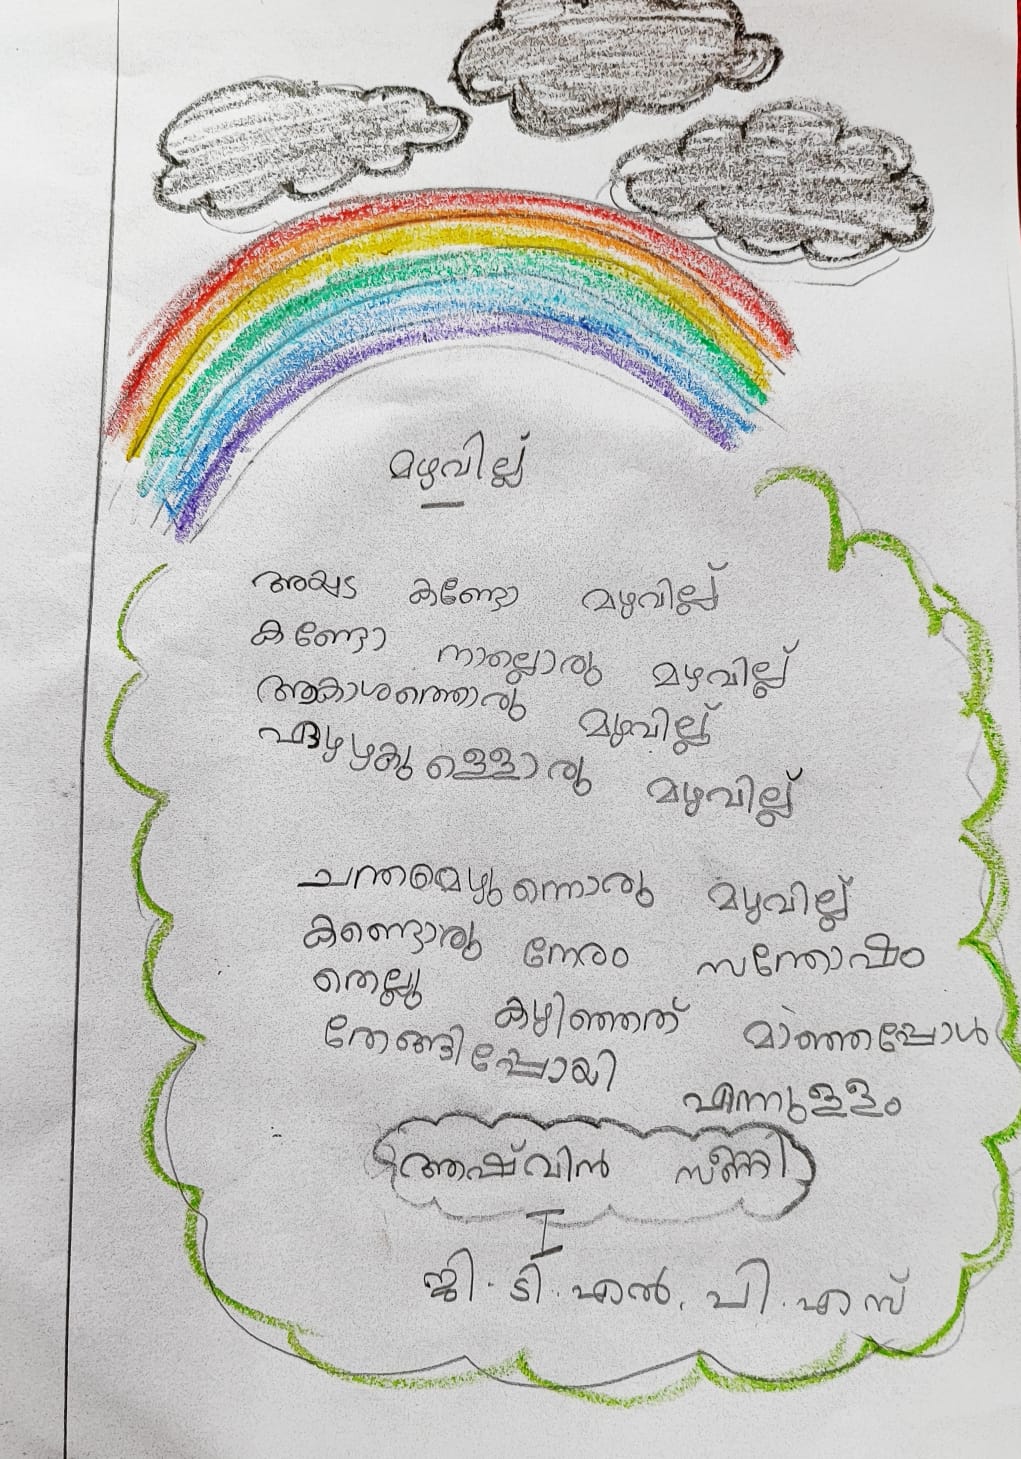 മഴവില്ല്
അയ്യട കണ്ടോ മഴവില്ല്
കണ്ടോ നാല്ലൊരു മഴവില്ല്
ആകാശത്തൊരു മഴവില്ല്
ഏഴഴകുള്ളൊരു മഴവില്ല്
ചന്തമെഴുന്നൊരു മഴവില്ല്
കണ്ടൊരു നേരം സന്തോഷം
തെല്ലു കഴിഞ്ഞത് മാഞ്ഞപ്പോൾ
തേങ്ങിപ്പോയി എന്നുള്ളം
ആഷ്‌വിൻ സണ്ണി
I
ജി. ടി. എൽ. പി. എസ്